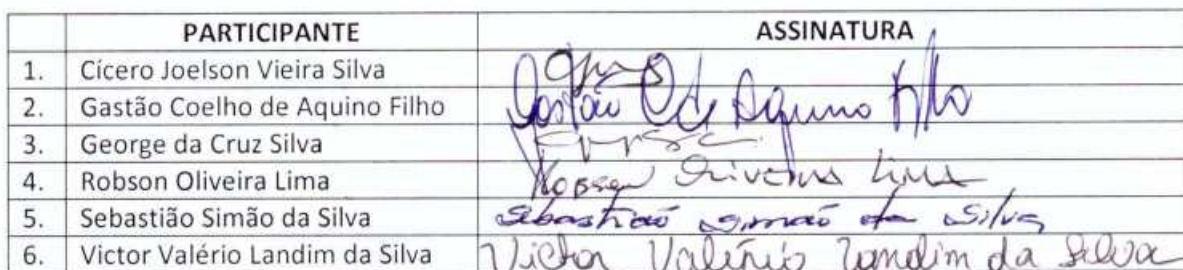 PARTICIPANTE ASSINATURA
1. Cícero Joelson Vieira Silva
2. Gastão Coelho de Aquino Filho Gastão C de Aquino Filho
3. George da Cruz Silva
4. Robson Oliveira Lima Robson Oliveira Lima
5. Sebastião Simão da Silva Sebastião Simão da Silva
6. Victor Valério Landim da Silva Victor Valério Landim da Silva